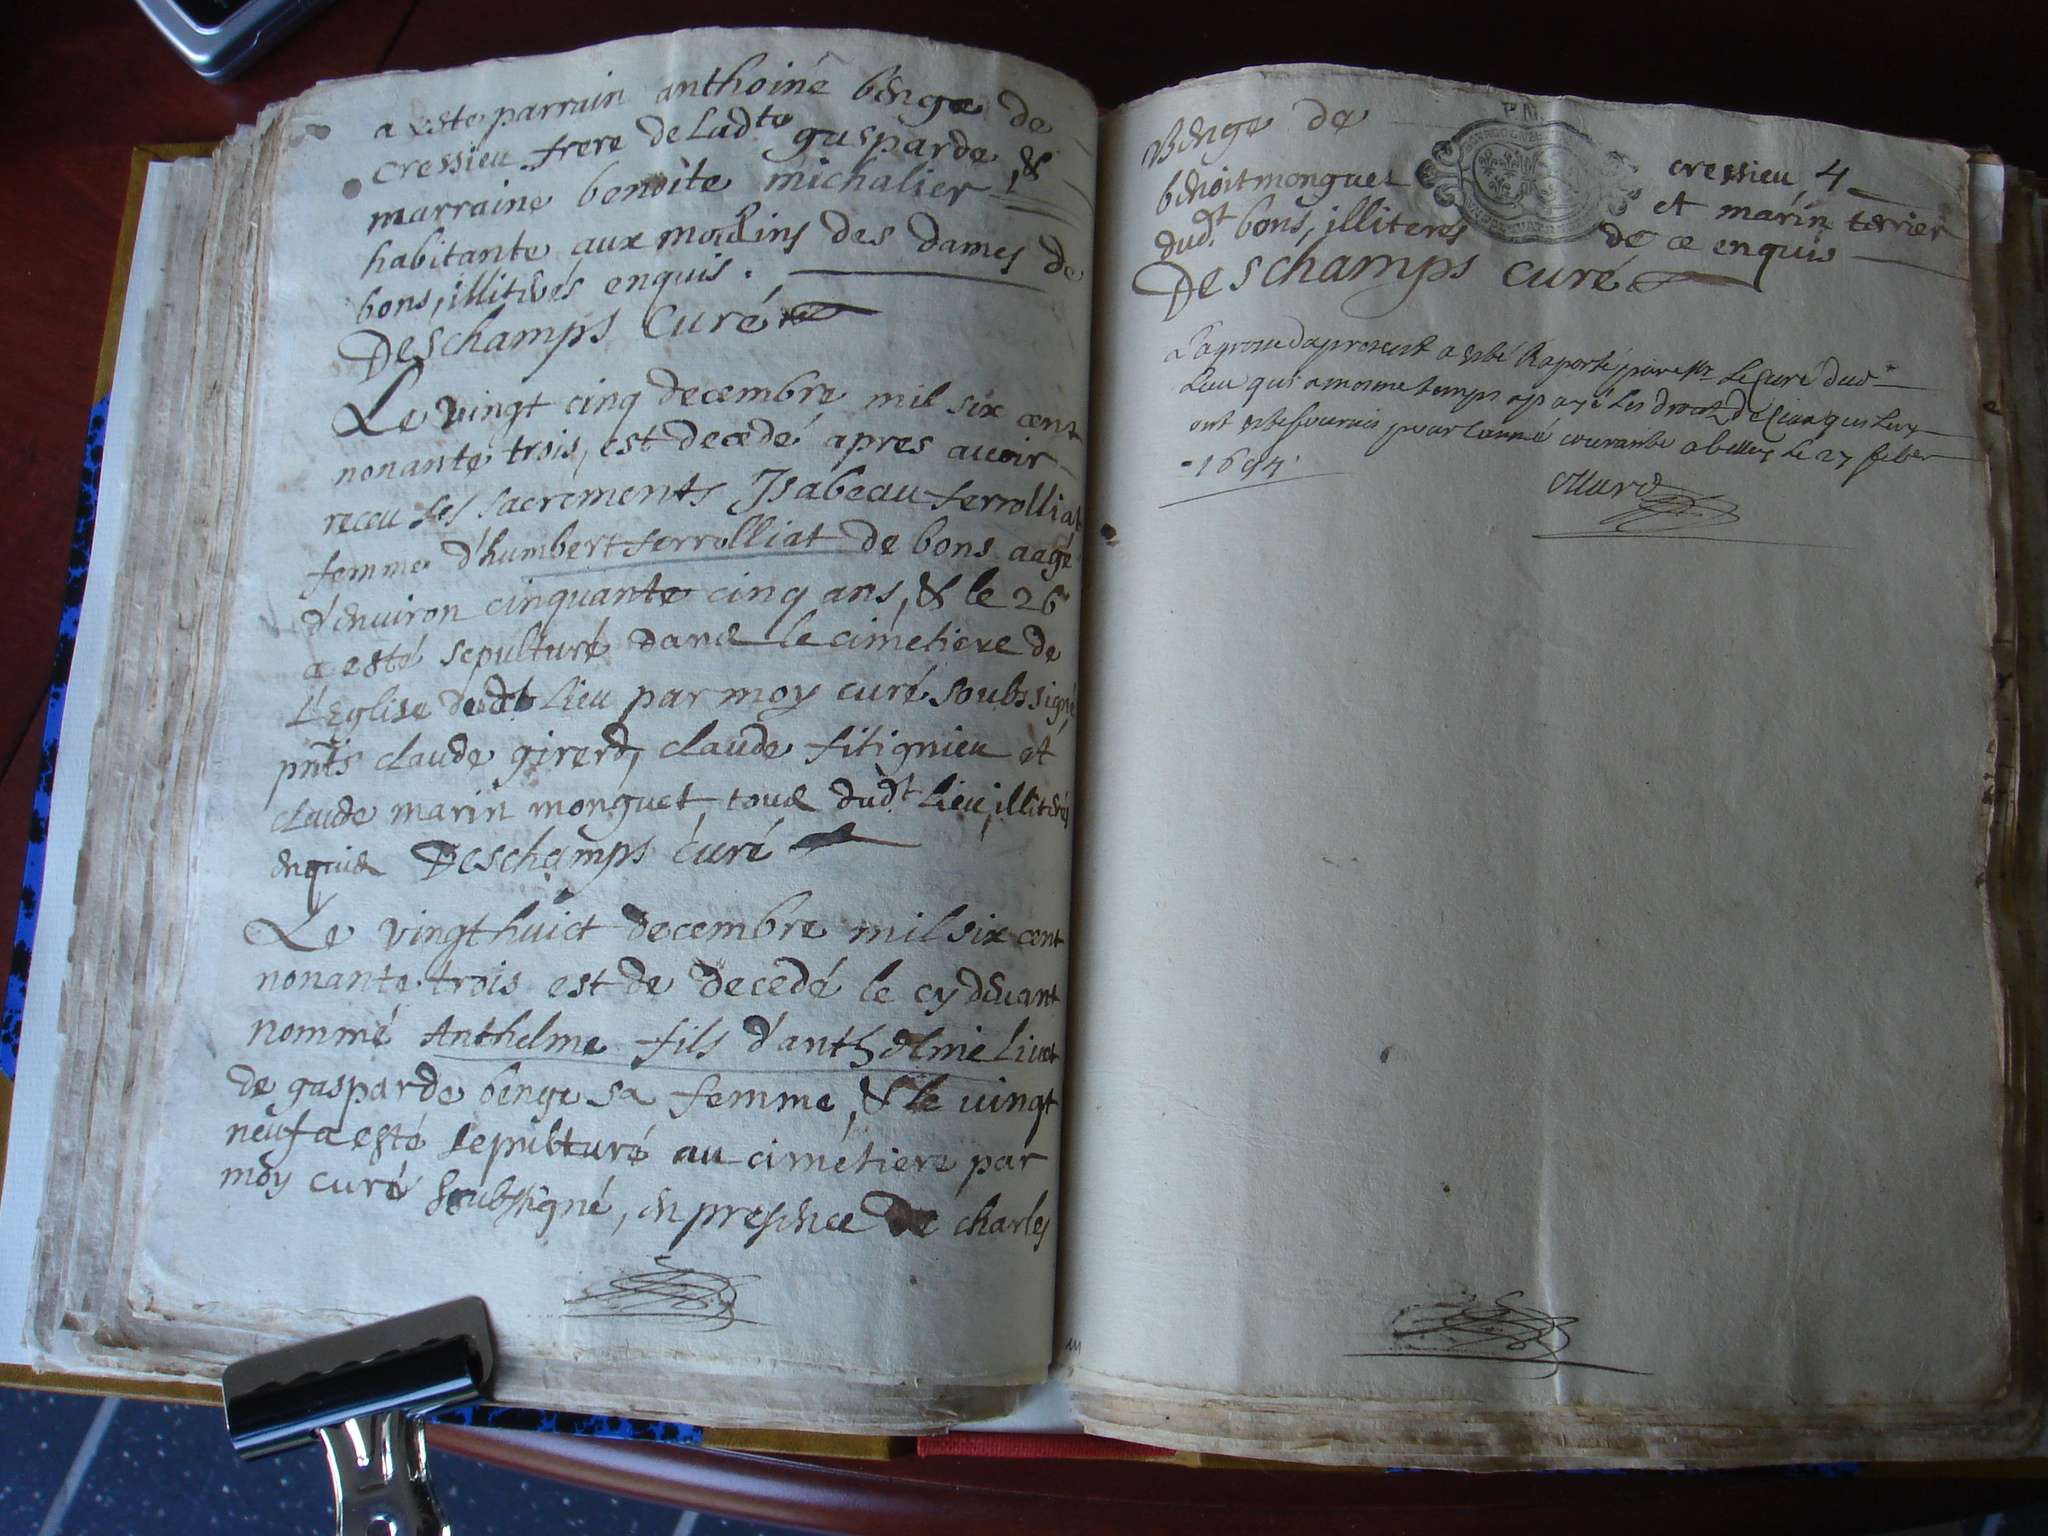 a este parrain anthoine benge de
cressieu frere de Ladte gusparde, &
marraine benoite michalier
habitante aux moulins des dames de
bons, illiterés enquis.
Deschamps Curé
Le vingt cinq decembre mil six cent
nonante trois, est decedé apres avoir
receu les sacrements Isabeau ferrolliat
femme d'humbert ferrolliat de bons aagé
d'enuiron cinquante cinq ans, & le 26
a esté sepulturé dans le cimetiere de
L'Eglise dudt Lieu par moy curé soubssigné,
pnts claude girerd, claude fitignieu et
claude marin monguet, tous dudt Lieu, illiterés
enquis Deschamps curé
Le vingthuict decembre mil six cent
nonante trois est de decedé le cy deuant
nommé Anthelme fils d'anthelme Livet
de gasparde benge sa femme, & le vingt
neuf a esté sepulturé au cimetiere par
moy curé soubssigné, en presence de charles
Benge de cressieu, 4
benoit monguet et marin terrier
dudt bons, illiteres de ce enquis
Deschamps curé
La grosse du present a esté Raporté par Mr Le Curé dudt
Lieu qui a mesme temps a payé Les droits de qui Luy
ont esté pour l'année courante a belley Le 27 feber
1694